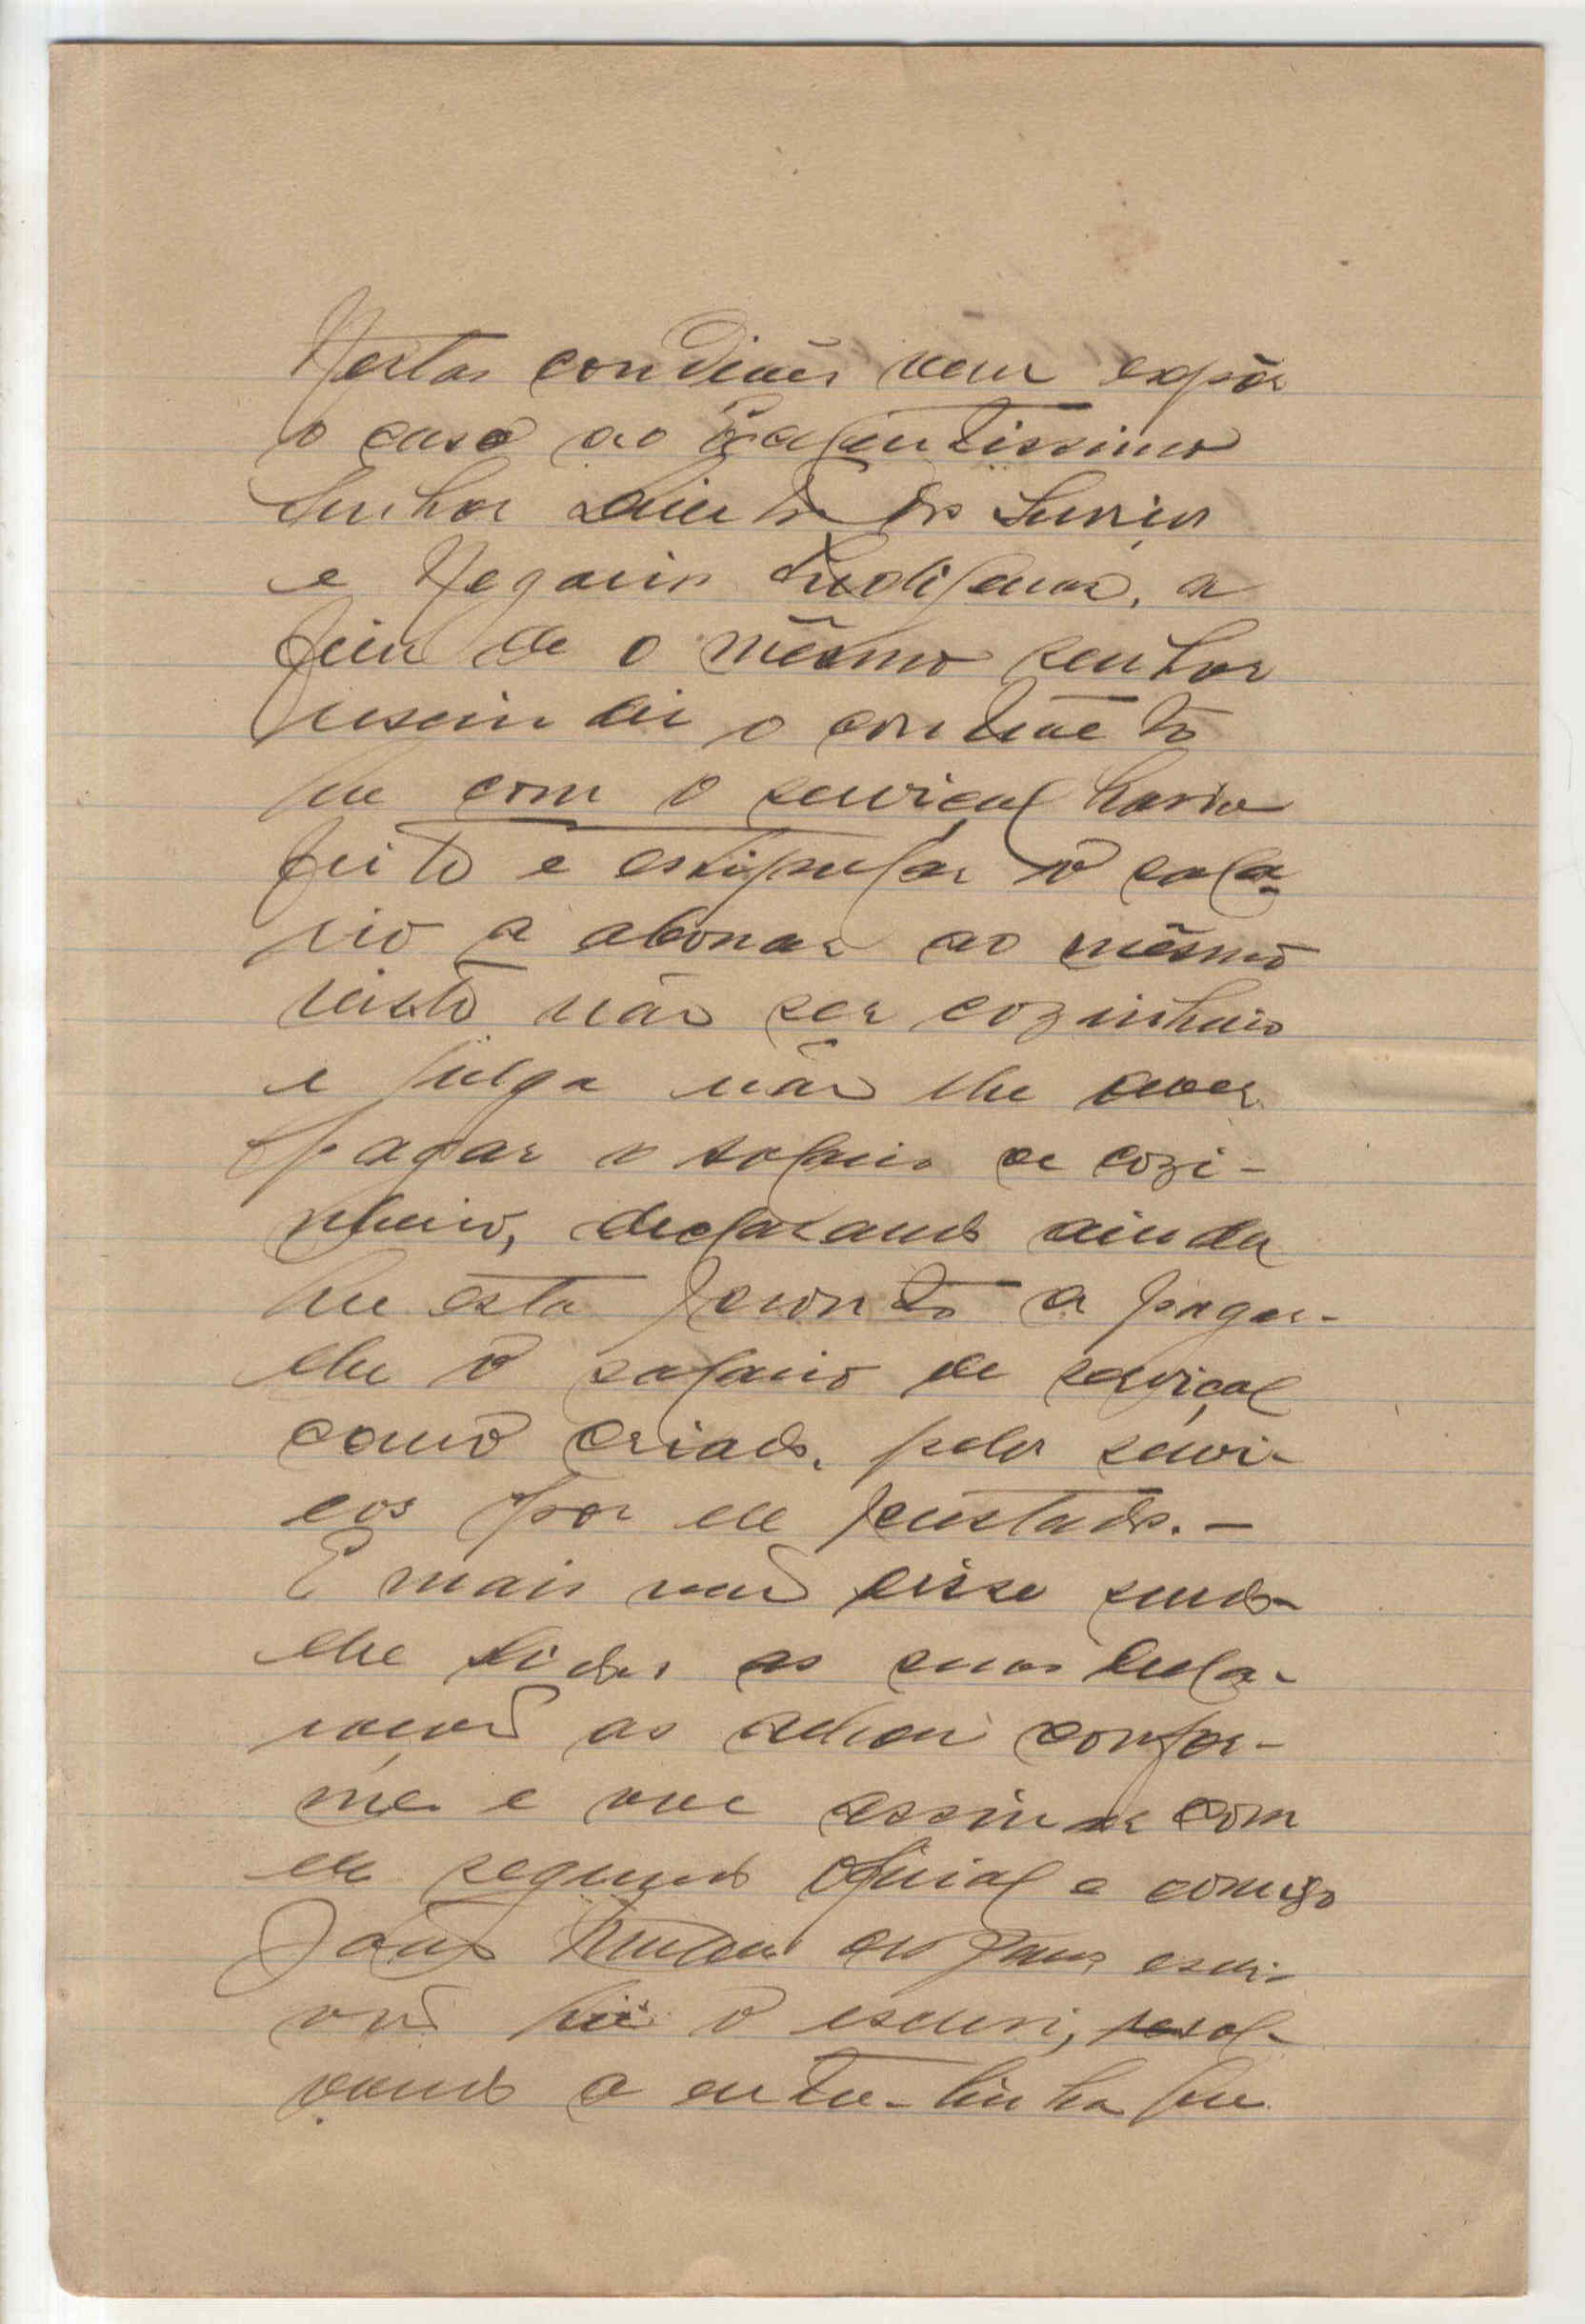 Nestas condições vem expôr
o caso ao Excelentissimo
Senhor Director dos Serviços
e Negocios Indígenas, a
fim de o mêsmo senhor
rescindir o contracto
que com o serviçal havia
feito e estipular o sala-
rio a abonar ao mêsmo
visto não ser cozinheiro
e julga não lhe dever
pagar o salario de cozi-
nheiro, declarando ainda
que esta pronto a pagar-
lhe o salario de serviçal
como criado, pelos servi-
ços por ele prestados. -
E mais não disse sendo-
lhe lidas as suas decla-
rações as achou confor-
me e vae assinar com
ele segundo oficial e comigo
João dos escri-
vão que o escrevi, resal-
vando a entre-linha que